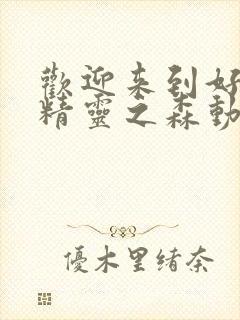 歡迎来到好
精靈之森動
優木里緒奈